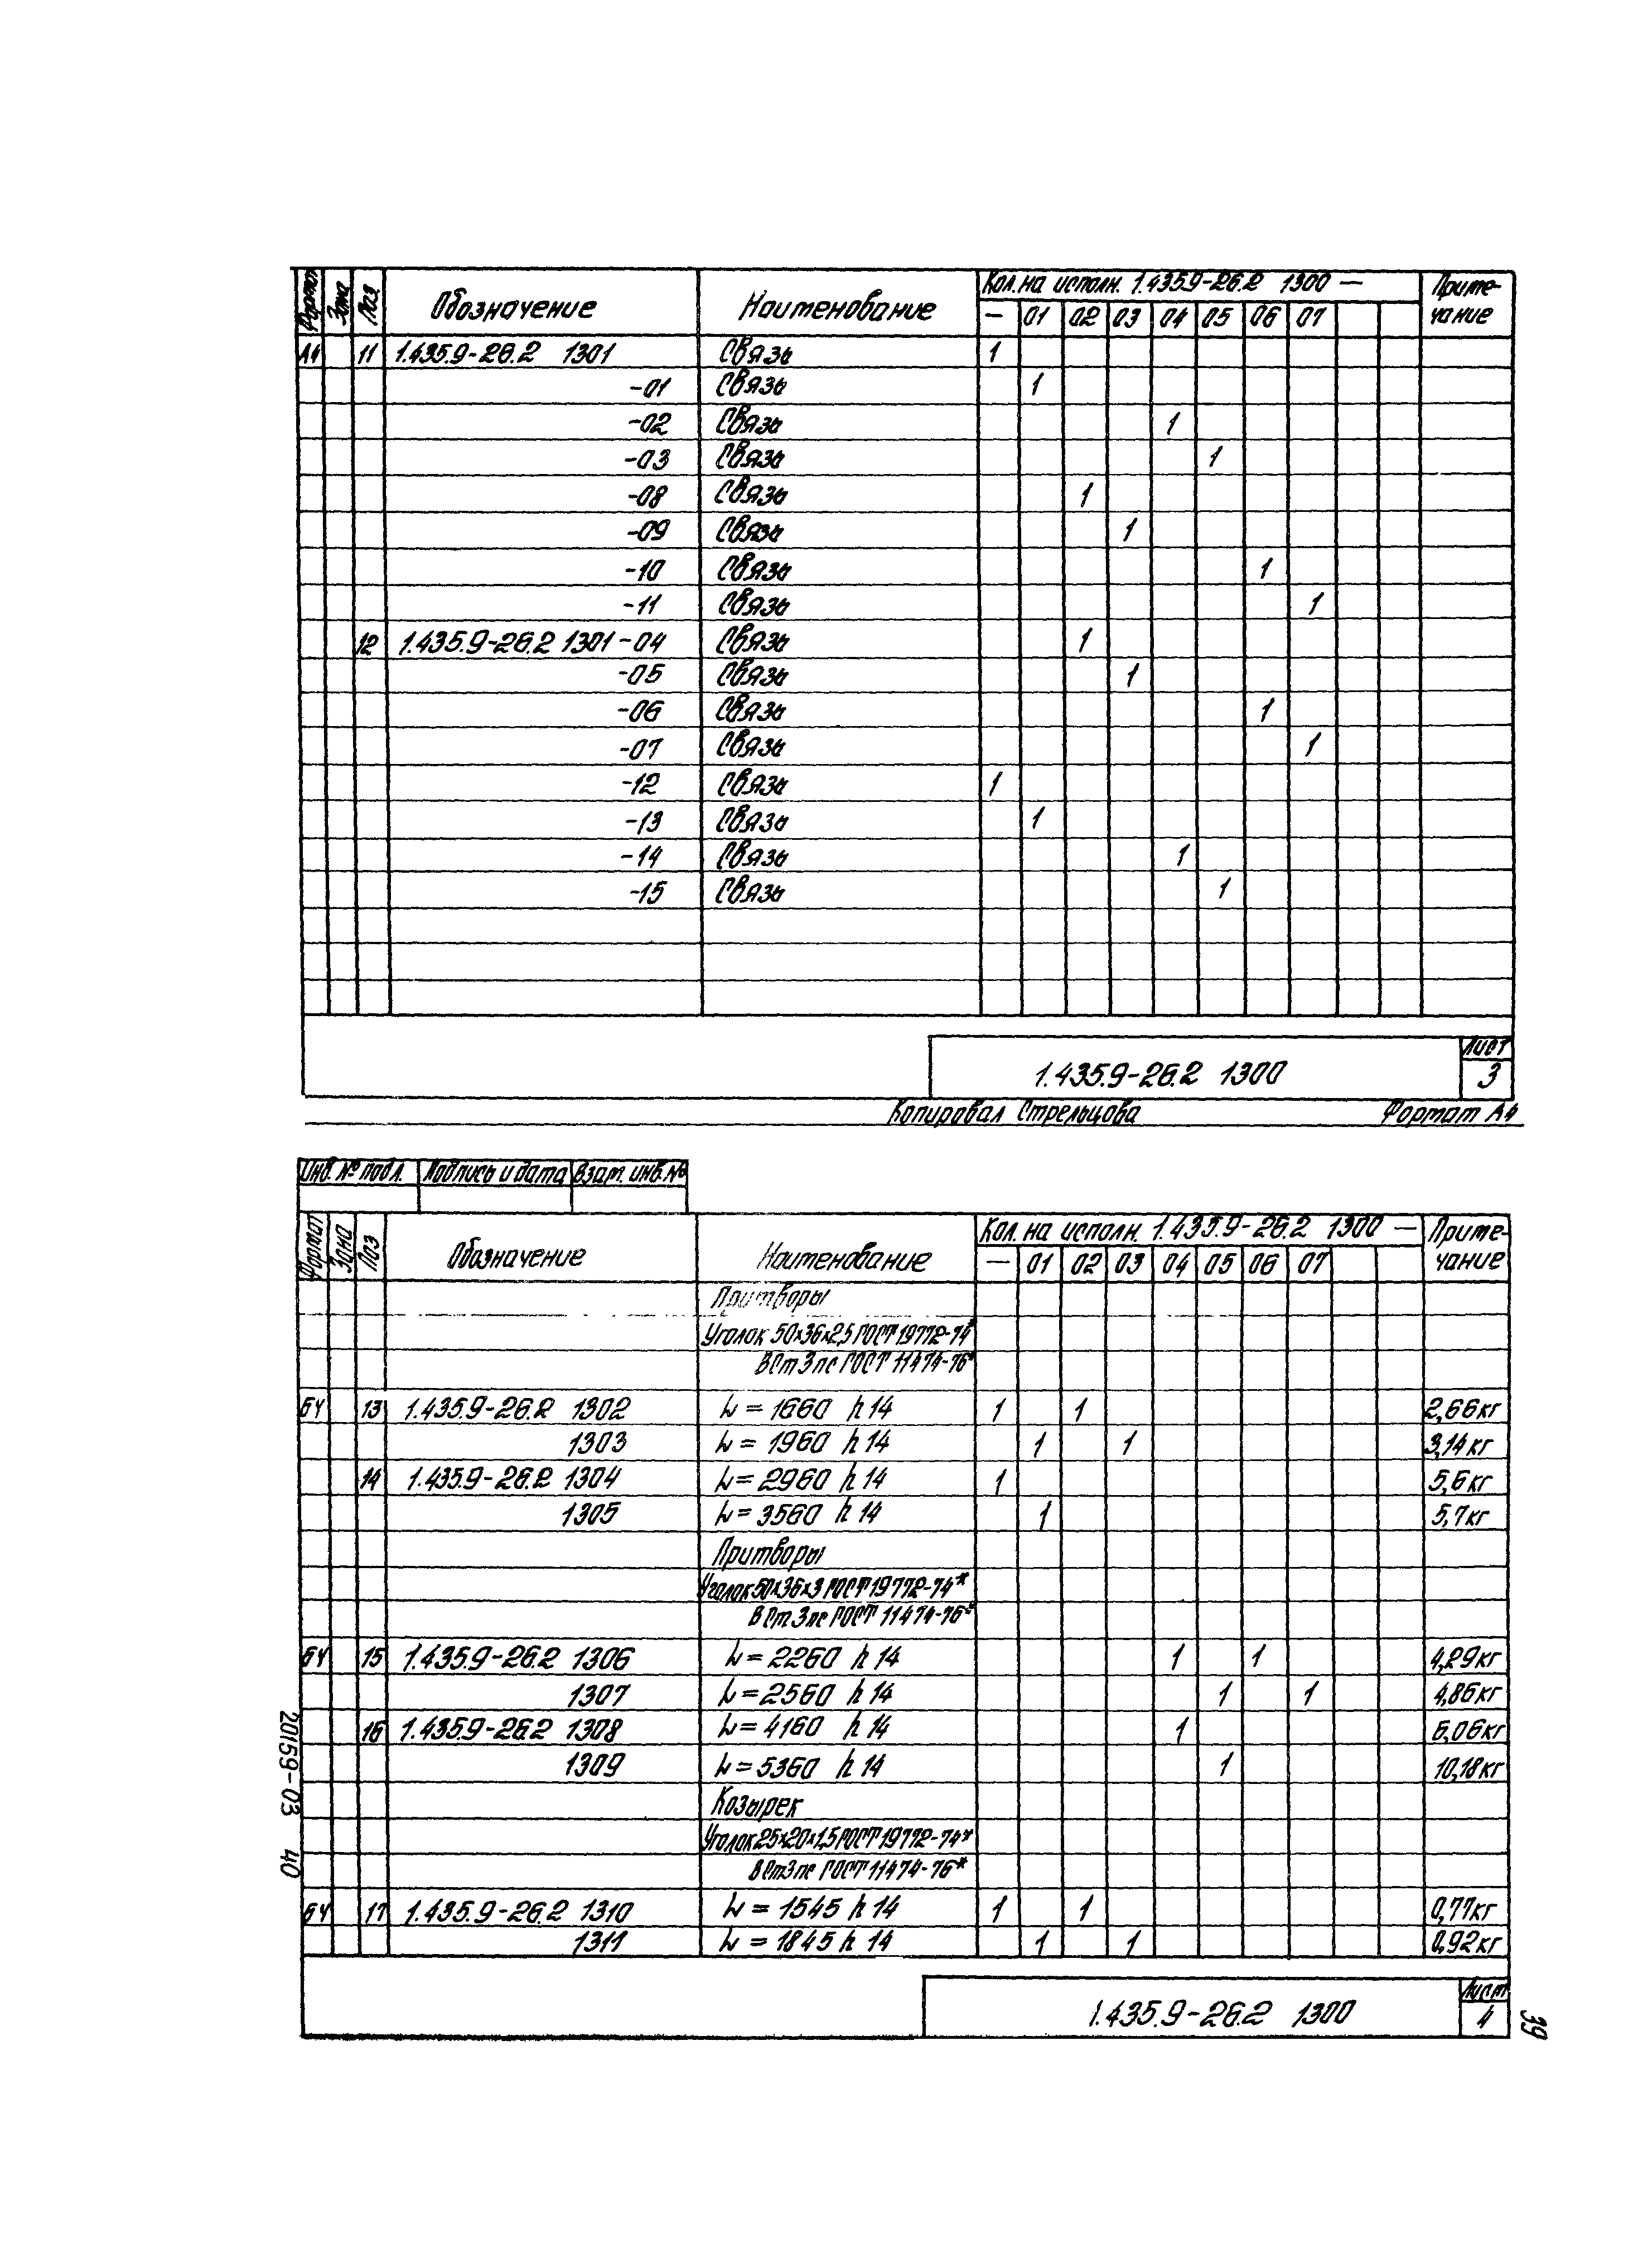 Формат Зона Поз Обозначение Наименование Кол. на исполн. 1.435.9-26.2 1300 — Приме-
— 01 02 03 04 05 06 07 чание
А4 11 1.435.9-26.2 1301 Связь 1
-01 Связь 1
-02 Связь 1
-03 Связь 1
-08 Связь 1
-09 Связь 1
-10 Связь 1
-11 Связь 1
12 1.435.9-26.2 1301-04 Связь 1
-05 Связь 1
-06 Связь 1
-07 Связь 1
-12 Связь 1
-13 Связь 1
-14 Связь 1
-15 Связь 1
1.435.9-26.2 1300 Лист
3
Копировал Стрельцова Формат А4
Инв. № подл. Подпись и дата Взам. инв. №
Формат Зона Поз Обозначение Наименование Кол. на исполн. 1.435.9-26.2 1300 — Приме-
— 01 02 03 04 05 06 07 чание
Притворы
Уголок 50×36×2,5 ГОСТ 19772-74*
ВСт3пс ГОСТ 11474-76*
БЧ 13 1.435.9-26.2 1302 L = 1660 h14 1 1 2,66кг
1303 L = 1960 h14 1 1 3,14кг
14 1.435.9-26.2 1304 L = 2960 h14 1 5,6кг
1305 L = 3560 h14 1 5,7кг
Притворы
Уголок 50×36×3 ГОСТ 19772-74*
ВСт3пс ГОСТ 11474-76*
БЧ 15 1.435.9-26.2 1306 L = 2260 h14 1 1 4,29кг
1307 L = 2560 h14 1 1 4,86кг
16 1.435.9-26.2 1308 L = 4160 h14 1 6,06кг
1309 L = 5360 h14 1 10,18кг
Козырек
Уголок 25×20×1,5 ГОСТ 19772-74*
ВСт3пс ГОСТ 11474-76*
БЧ 17 1.435.9-26.2 1310 L = 1545 h14 1 1 0,77кг
1311 L = 1845 h14 1 1 0,92кг
1.435.9-26.2 1300 Лист
4
20159-03 40
39